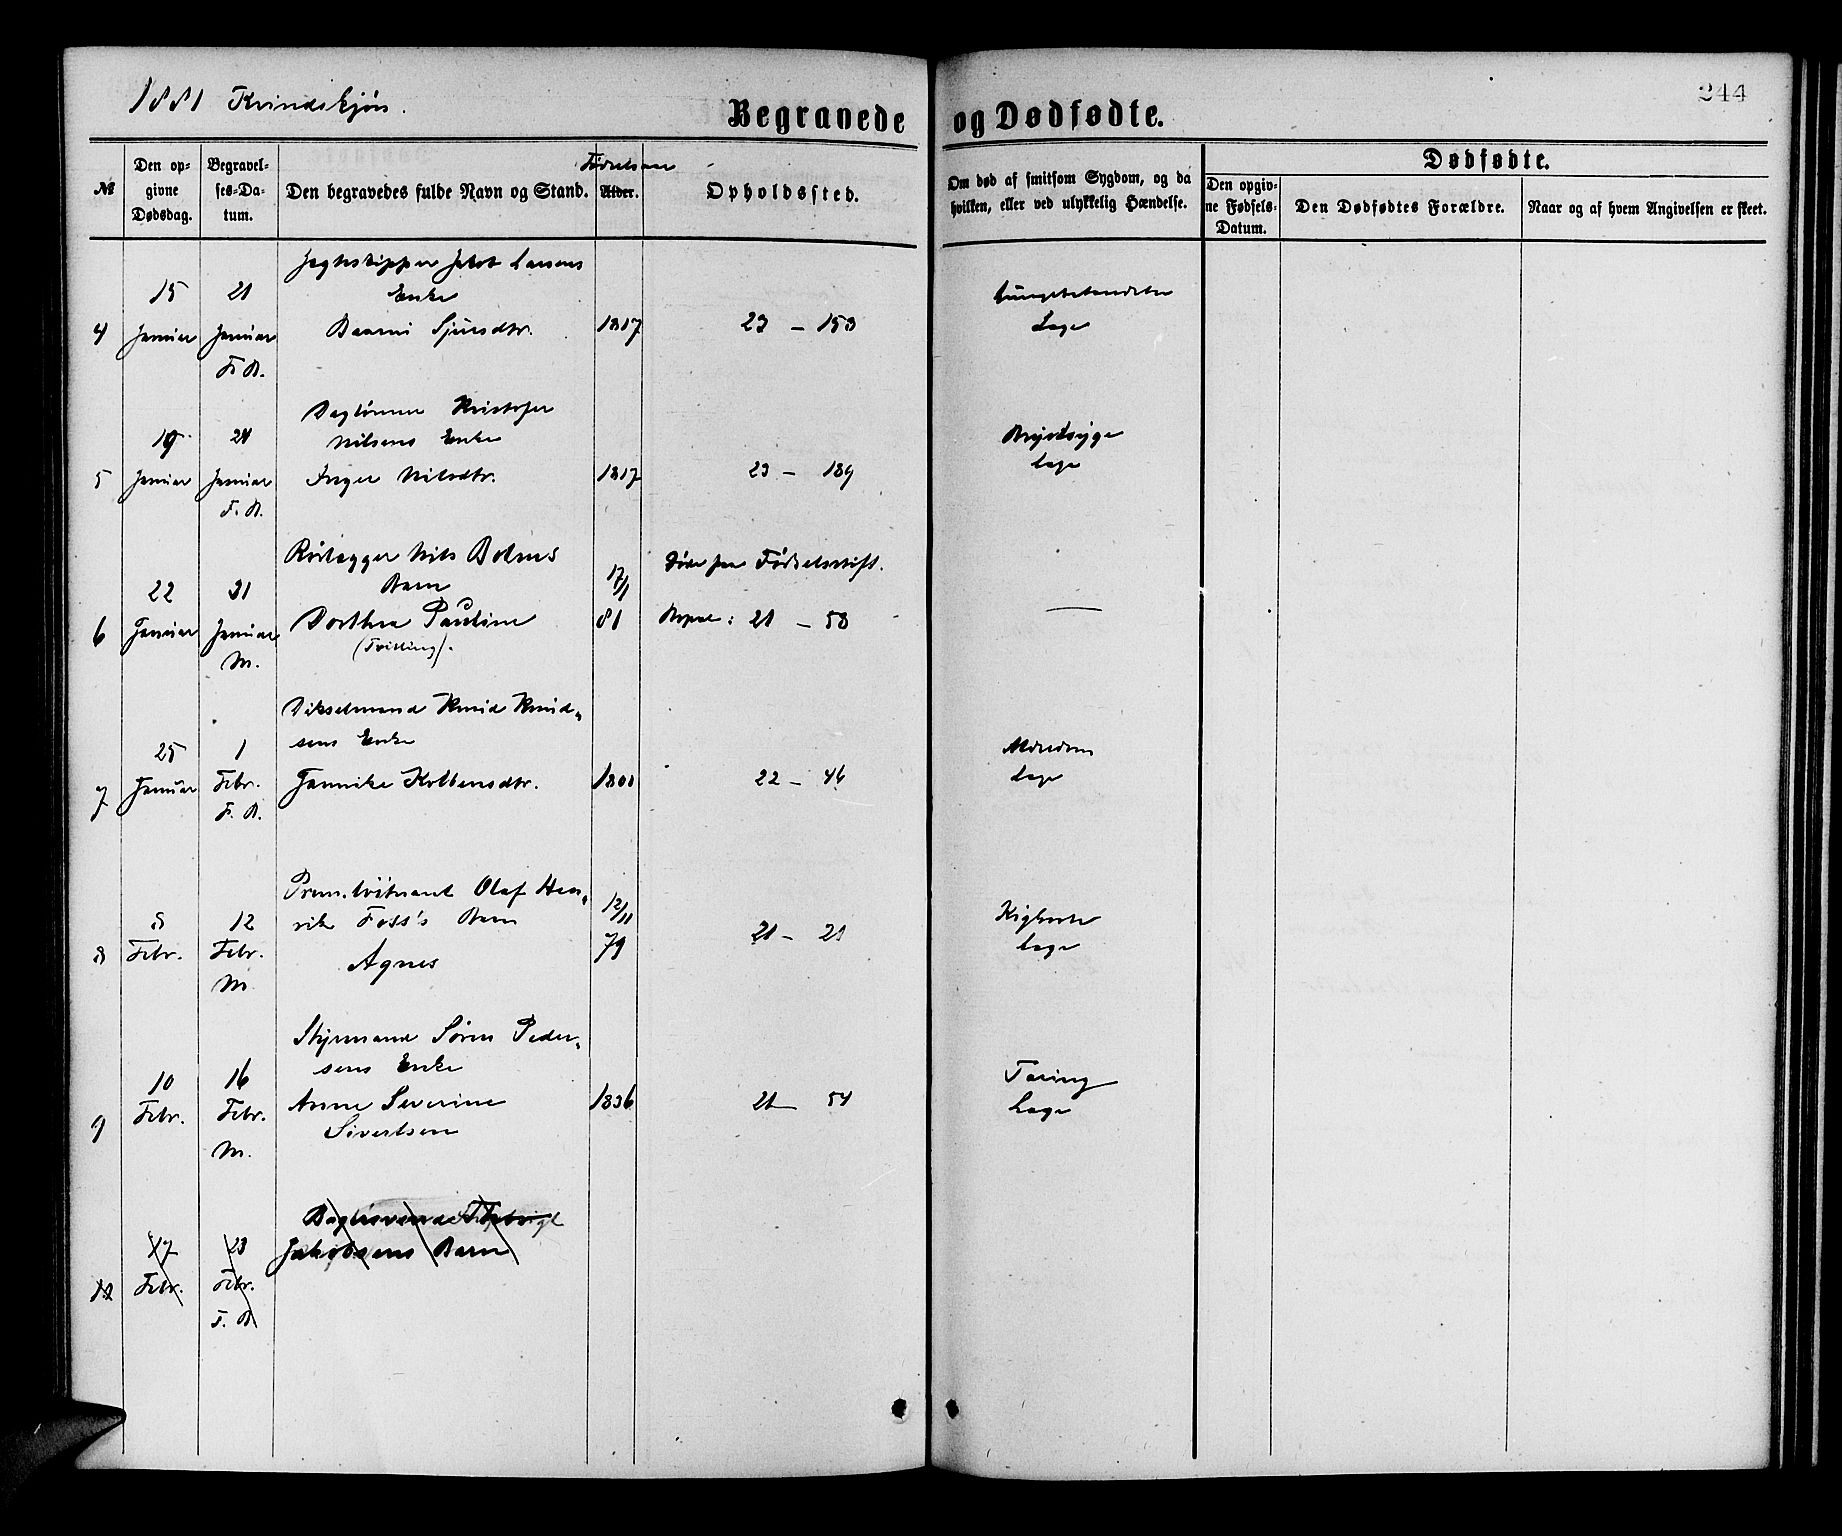 1881 Kvindekjøn.
244
Begravede og Dødfødte.
№
Den op-
givne
Dødsdag.
Begravel-
ses-Da-
tum.
Den begravedes fulde Navn og Stand.
Fødselsaar
Alder.
Opholdssted.
Om død af smitsom Sygdom, og da
hvilken, eller ved ulykkelig Hændelse.
Dødfødte.
Den opgiv-
ne Fødsels-
Datum.
Den Dødfødtes Forældre.
Naar og af hvem Angivelsen er skeet.
4
15
Januar
21
Januar
F. B.
Jagtskipper Jakob Larsens
Enke
Sjursdtr.
1817
23 – 153
Lungebetændelse
Læge
5
19
Januar
24
Januar
F. B.
Daglønner Kristofer
Nilsens Enke
Inger Nilsdtr.
1817
23 – 189
Brystsyge
Læge
6
22
Januar
31
Januar
M.
Nils
Barn
Dorthea Pauline
(Tvilling).
17/1
81
Døde paa Fødselsstift.
Bopæl: 21 – 58
—
7
25
Januar
1
Febr.
F. B.
Knud Knud-
sens Enke
Jannike Kolbensdtr.
1800
22 – 46
Alderdom
Læge
8
8
Febr.
12
Febr.
M.
Prem.løitnant Olaf Hen-
rik Foss's Barn
Agnes
12/11
79
21 – 21
Kighoste
Læge
9
10
Febr.
16
Febr.
M.
Styrmand Søren Peder-
sens Enke
Anne Severine
Sivertsen
1836
21 – 54
Tæring
Læge
17
Febr.
23
Febr.
F. B.
Jakobsens Barn